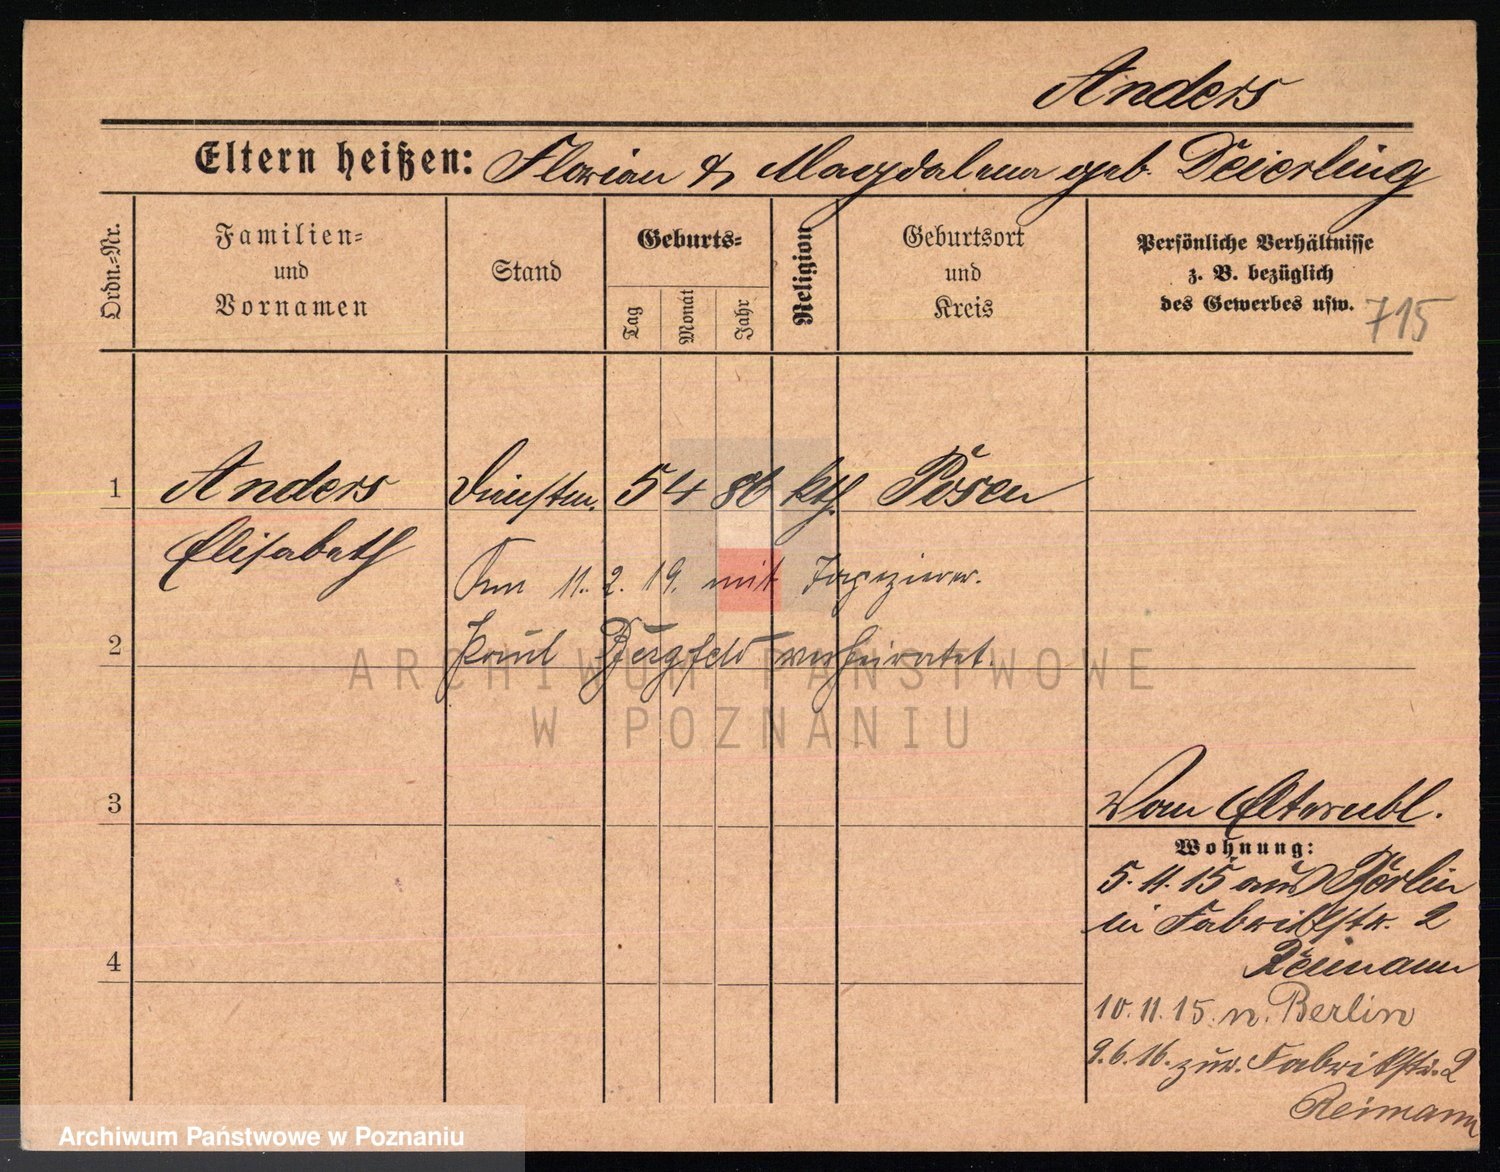 Anders
Eltern heißen: Florian & Magdalena geb. Deierling
Ordn.-Nr.
Familien-
und
Vornamen
Stand
Geburts-
Tag
Monat
Jahr
Religion
Geburtsort
und
Kreis
Persönliche Verhältnisse
z. B. bezüglich
des Gewerbes usw.
715
1 Anders 5 4 86 kth. Posen
Elisabeth
Am 11. 2. 19. mit Tapezierer.
2 Paul Bergfeld verheiratet.
ARCHIWUM PAŃSTWOWE
W POZNANIU
3 Vom Elternbl.
Wohnung:
5. 11. 15 aus Berlin
in Fabrikstr. 2
4 Reimann
10. 11. 15. n. Berlin
9. 6. 16. zur. Fabrikstr. 2
Reimann
Archiwum Państwowe w Poznaniu